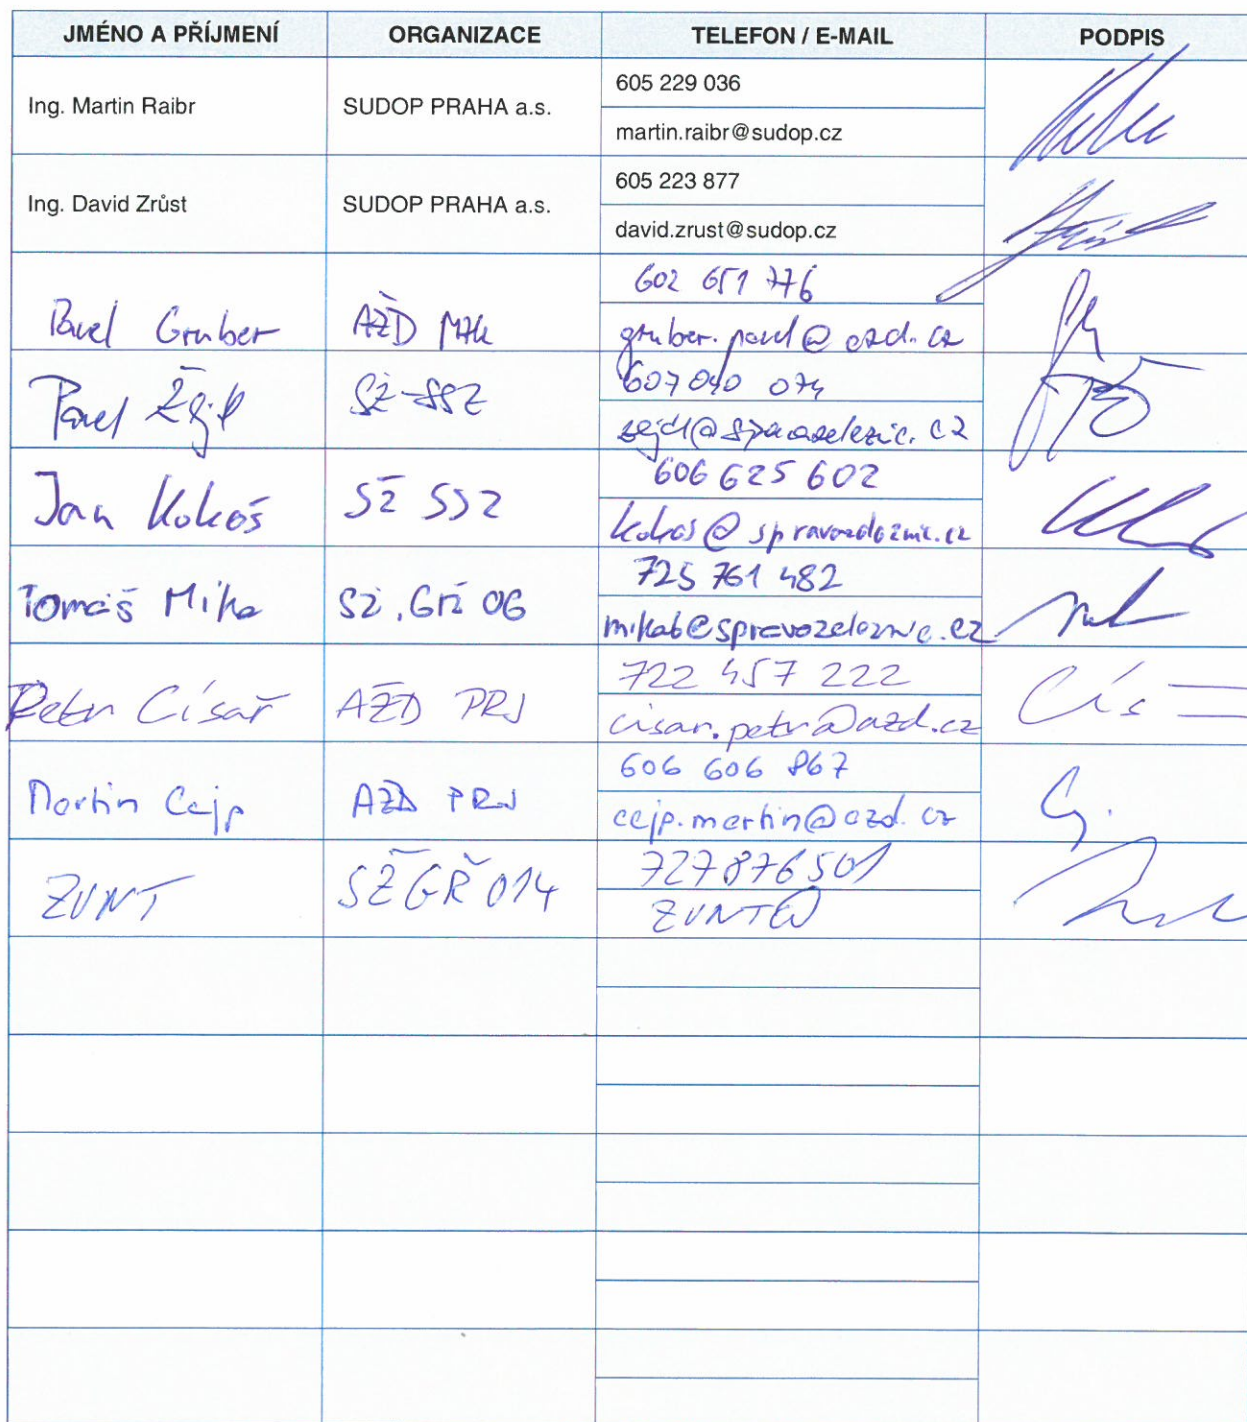 JMÉNO A PŘÍJMENÍ ORGANIZACE TELEFON / E-MAIL PODPIS
Ing. Martin Raibr SUDOP PRAHA a.s. 605 229 036
martin.raibr@sudop.cz
Ing. David Zrůst SUDOP PRAHA a.s. 605 223 877
david.zrust@sudop.cz
Pavel Gruber AŽD 602 651 776
gruber.pavel@azd.cz
Pavel SŽ-SSZ 607 040 074
Jan Kokoš SŽ SSZ 606 625 602
kokos@spravazeleznic.cz
Tomáš Mika SŽ, GŘ O6 725 761 482
mikat@spravazeleznic.cz
Petr Císař AŽD PRJ 722 457 222
cisar.petr@azd.cz
Martin Cejp AŽD PRJ 606 606 867
cejp.martin@azd.cz
ZUNT SŽ GŘ O14 727876501
ZUNT@